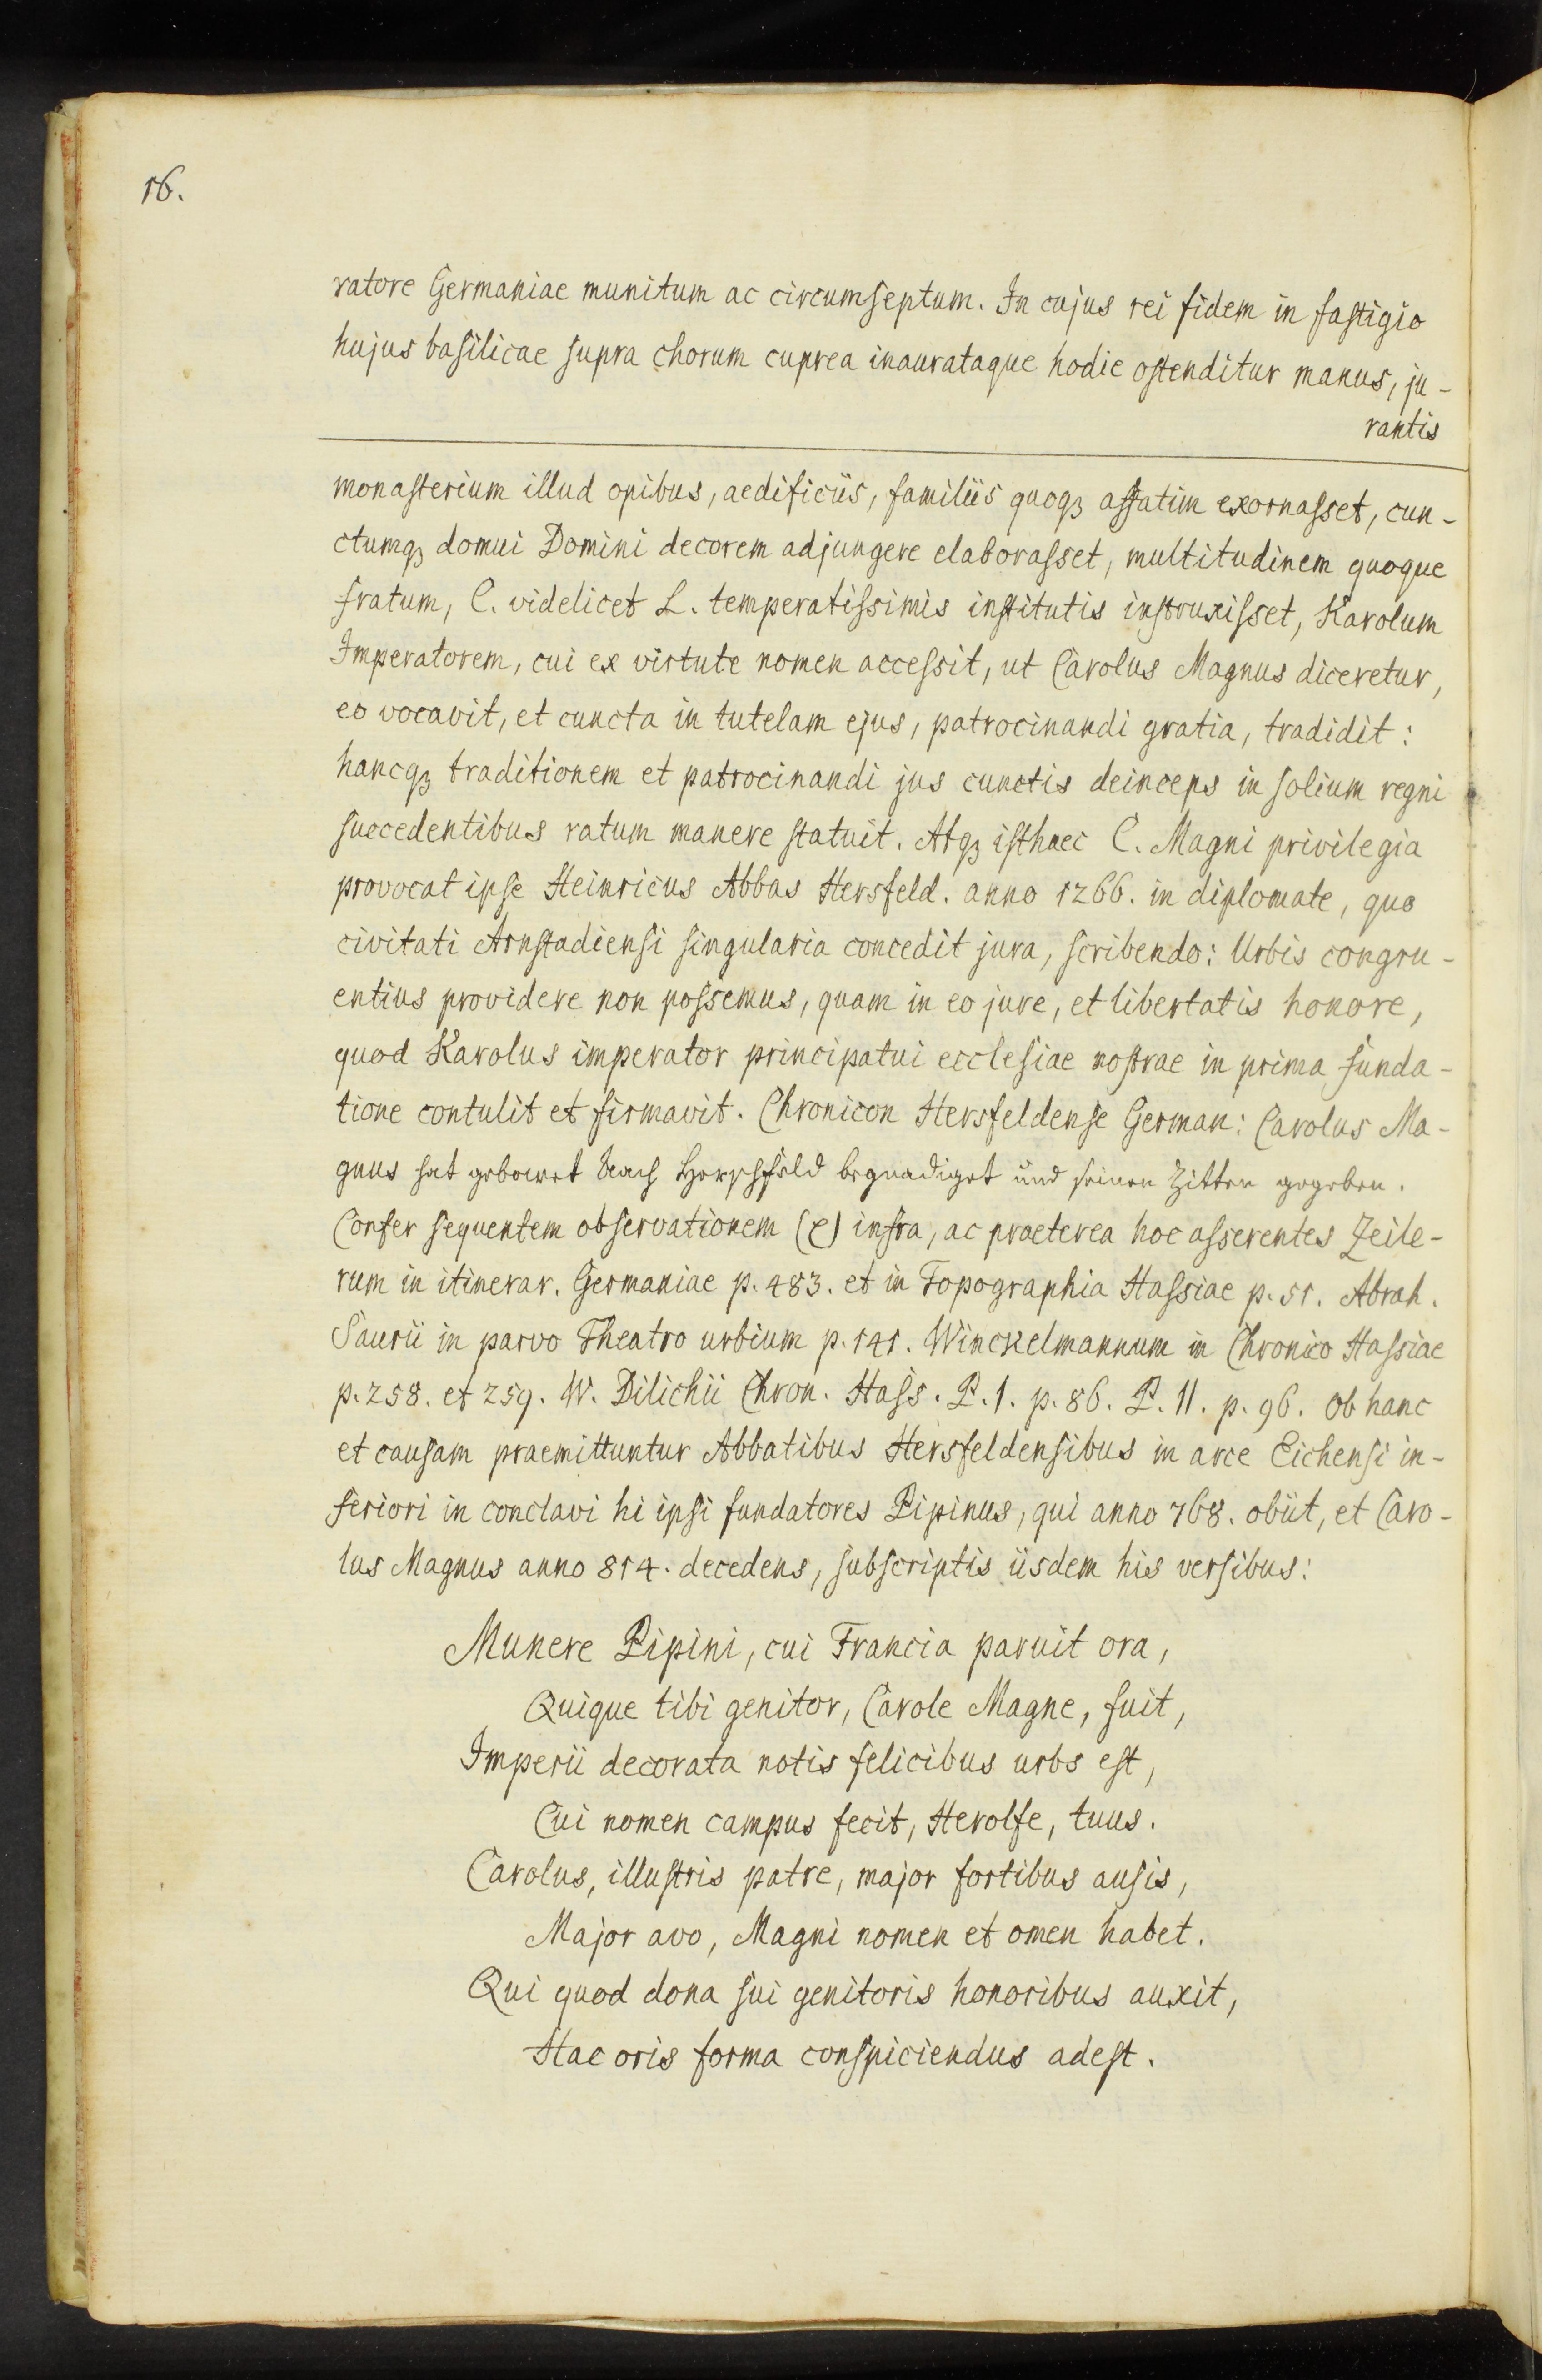 16.
ratore Germaniae munitum ac circumseptum. In cujus rei fidem in fastigio
hujus basilicae supra chorum cuprea inaurataque hodie ostenditur manus, ju-
rantis
monasterium illud opibus, aedificiis, familiis quoqꝫ affatim exornasset, cun-
ctumqꝫ domui Domini decorem adjungere elaborasset, multitudinem quoque
fratum, C. videlicet L. temperatissimis institutis instruxisset, Karolum
Imperatorem, cui ex virtute nomen accessit, ut Carolus Magnus diceretur,
eo vocavit, et cuncta in tutelam ejus, patrocinandi gratia, tradidit:
hancqꝫ traditionem et patrocinandi jus cunctis deinceps in solium regni
succedentibus ratum manere statuit. Atqꝫ isthaec C. Magni privilegia
provocat ipse Heinricus Abbas Hersfeld. anno 1266. in diplomate, quo
civitati Arnstadiensi singularia concedit jura, scribendo: Urbis congru-
entius providere non possemus, quam in eo jure, et libertatis honore,
quod Karolus imperator principatui ecclesiae nostrae in prima funda-
tione contulit et firmavit. Chronicon Hersfeldense German: Carolus Ma-
gnus hat gebawet begnadiget und seinen Zitten gegeben.
Confer sequentem observationem (e) infra, ac praeterea hoc asserentes Zeile-
rum in itinerar. Germaniae p. 483. et in Topographia Hassiae p. 51. Abrah.
Saurii in parvo Theatro urbium p. 141. Winckelmannum in Chronico Hassiae
p. 258. et 259. W. Dilichii Chron. Hass. P. I. p. 86. P. II. p. 96. Ob hanc
et causam praemittuntur Abbatibus Hersfeldensibus in arce Eichensi in-
feriori in conclavi hi ipsi fundatores Pipinus, qui anno 768. obiit, et Caro-
lus Magnus anno 814. decedens, subscriptis iisdem his versibus:
Munere Pipini, cui Francia paruit ora,
Quique tibi genitor, Carole Magne, fuit,
Imperii decorata notis felicibus urbs est,
Cui nomen campus fecit, Herolfe, tuus.
Carolus, illustris patre, major fortibus ausis,
Major avo, Magni nomen et omen habet.
Qui quod dona sui genitoris honoribus auxit,
Hac oris forma conspiciendus adest.